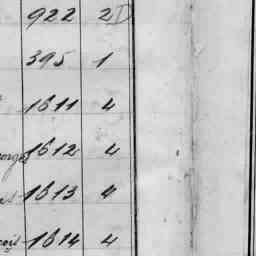 922 2D
395 1
1611 4
1612 4
1613 4
1614 4